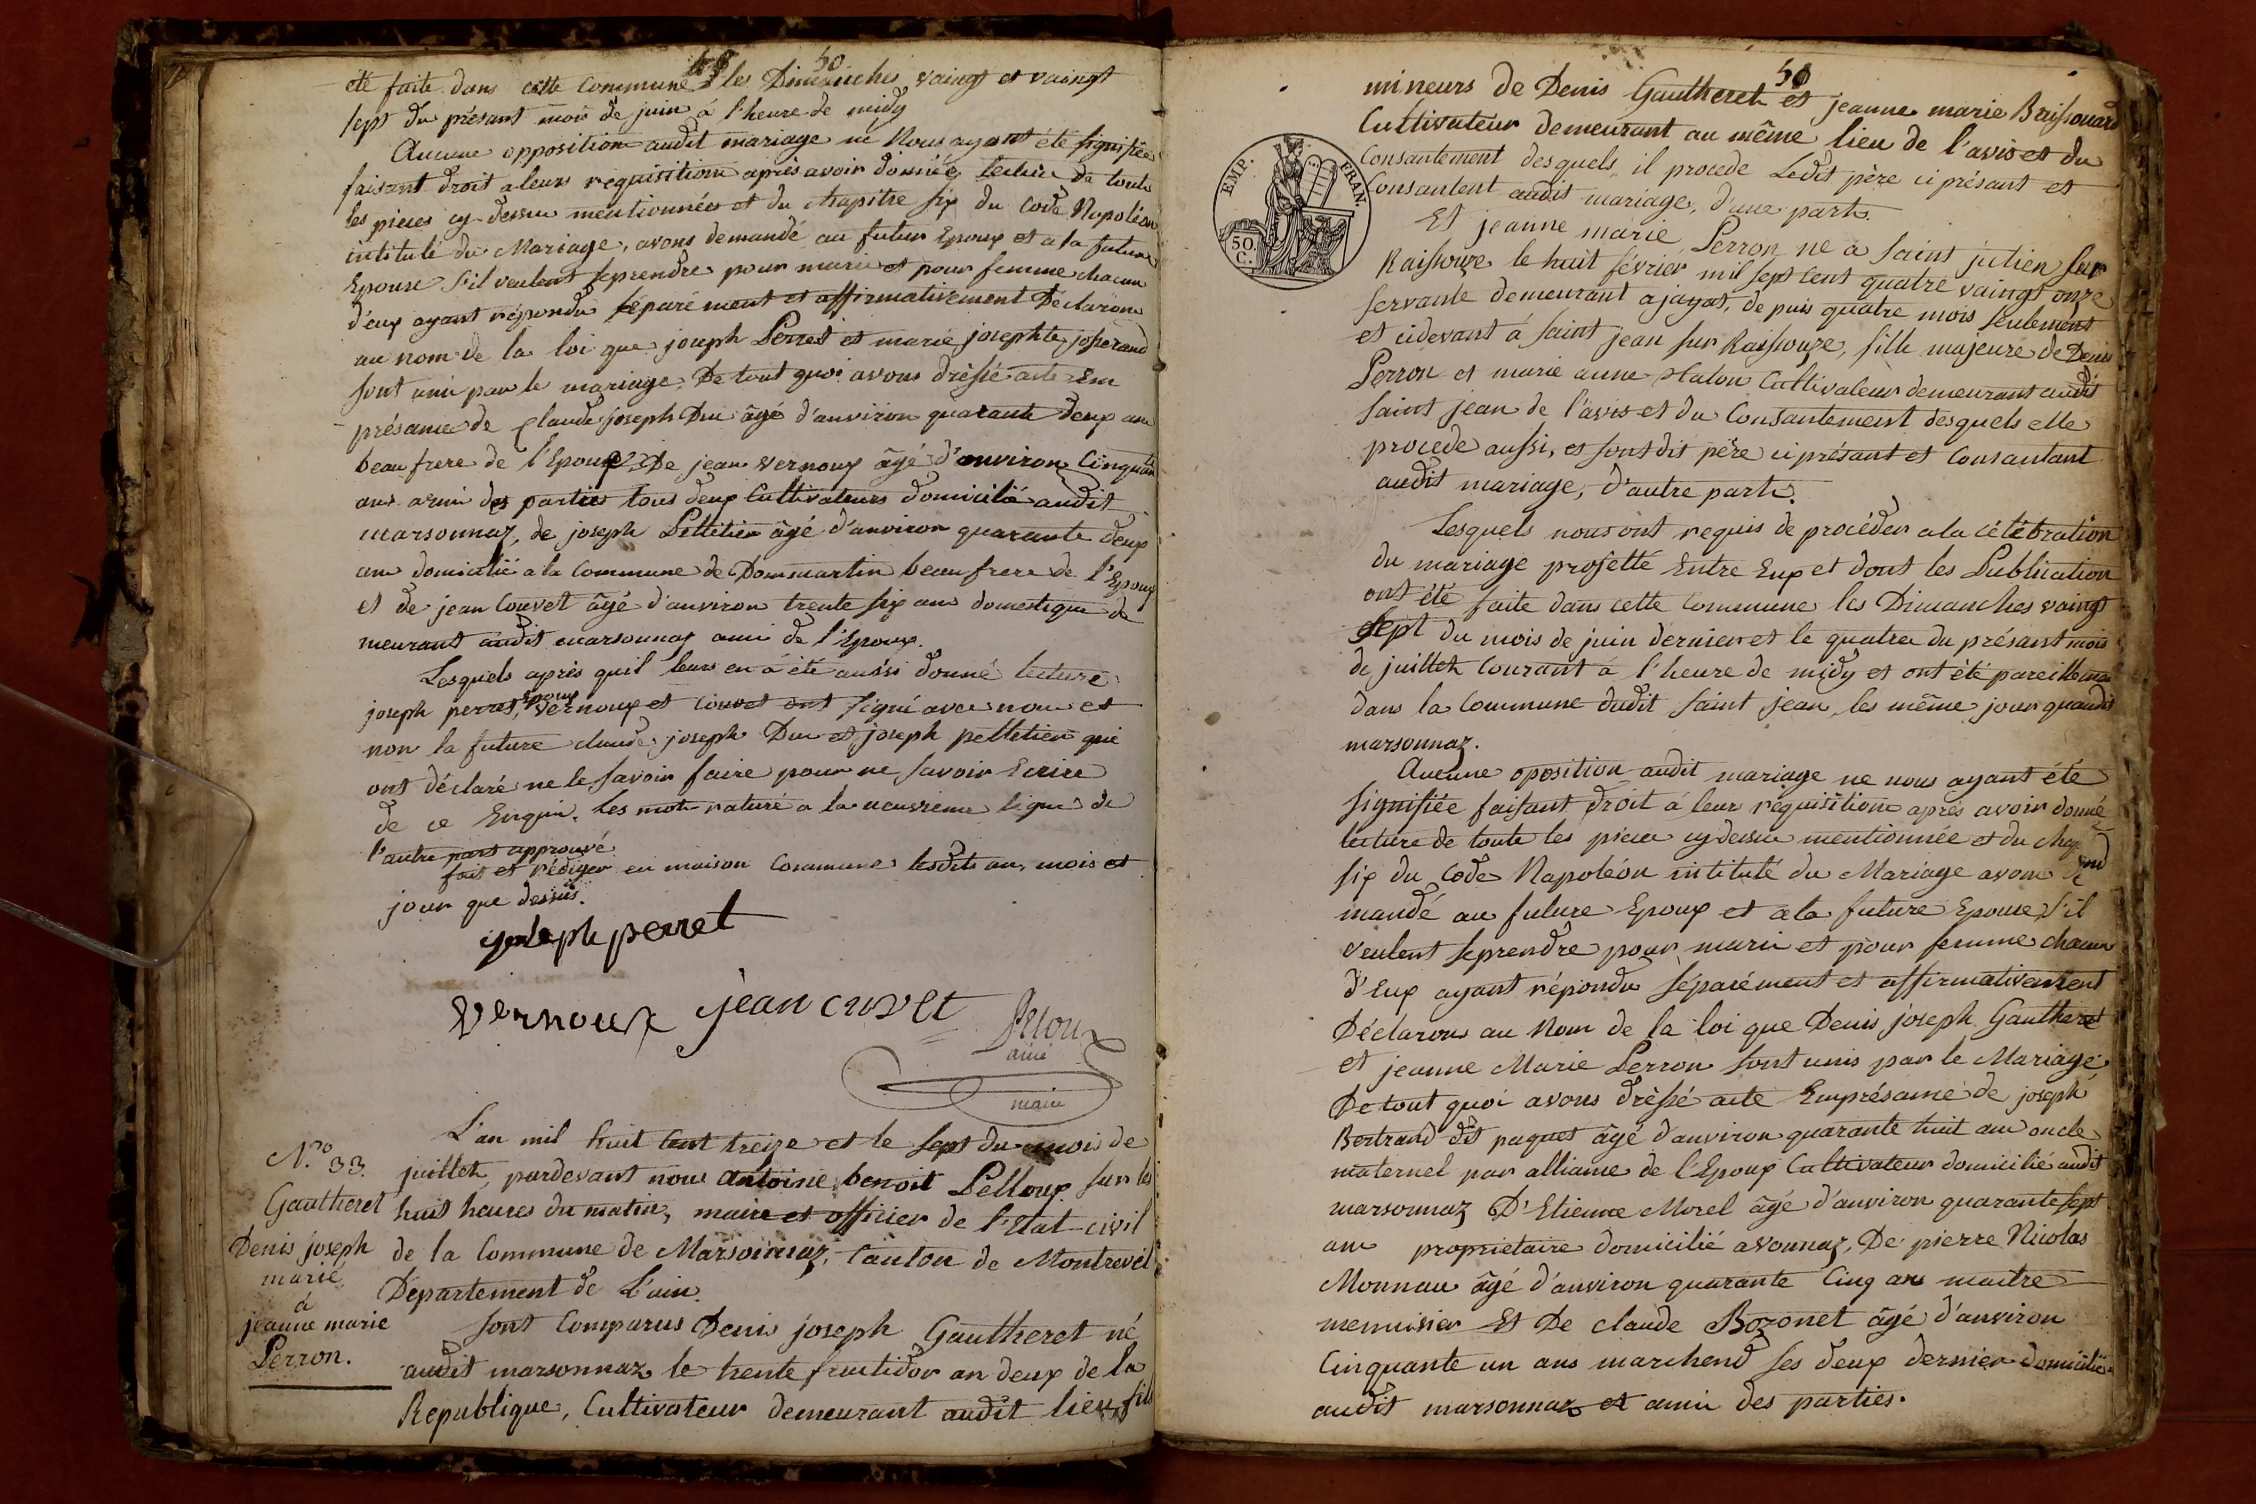 50
été faite dans cette Commune les Dimanches vaingt et vaingt
sept du présant mois de juin à l'heure de midy
Aucune opposition audit mariage ne Nous ayant été signifiée
faisant droit a leurs requisition après avoir donnée lecture de toute
les pieces cy dessu mentionnées et du chapitre six du Code Napoléon
intitulé du Mariage, avons demandé au futur Epoux et a la future
Epouse s'il veulent se prendre pour mari et pour femme chacun
d'eux ayant répondu séparément et affirmativement Déclarons
au nom de la loi que joseph Perret et marie josephte josserand
sont uni par le mariage. De tout quoi avons dressé acte En
présance de claude joseph Duc âgé d'anviron quarante deux ans
beau frere de l'Epoux De jean vernoux âgé d'anviron Cinquante
ans ami des parties tous deux Cultivateurs domicilié audit
marsonnaz, de joseph Pelletier âgé d'anviron quarante deux
ans domicilié a la Commune de Dommartin beau frere de l'Epoux
et de jean Couvet âgé d'anviron trente six ans domestique de
meurant audit marsonnaz ami de l'Epoux.
Lesquels après quil leurs en a été aussi donné lecture
joseph perret, Epoux vernoux et Couvet ont signé avec nous et
non la future claude joseph Duc et joseph pelletier qui
ont déclaré ne le savoir faire pour ne savoir Ecrire
de ce Enquis. les mots raturé a la neuvieme ligne de
l'autre part approuvé
fait et rédiger en maison Commune lesdits an, mois et
jour que dessus.
joseph perret
vernoux jean cuvet Pelloux
ainé
maire
N.º 33.
Gautheret
Denis joseph
marié
à
jeanne marie
Perron.
L'an mil huit cent treize et le sept du mois de
juillet, pardevant nous antoine benoit Pelloux sur les
huit heures du matin, maire et officier de l'Etat-civil
de la Commune de Marsonnaz, Canton de Montrevel
Département de L'ain.
sont Comparus Denis joseph Gautheret né
audit marsonnaz le trente fructidor an deux de la
Republique, Cultivateur demeurant audit lieu, fils
50
mineurs de Denis Gautheret et jeanne marie Brissouard
Cultivateur demeurant au même lieu de l'avis et du
Consantement desquels il procede Ledit père ci présant et
Consantent audit mariage, d'une part.
EMP. FRAN.
50.
C.
Et jeanne marie Perron né à saint julien sur
Raissouze le huit février mil sept cent quatre vaingt onze
servante demeurant a jayat, depuis quatre mois seulement
et cidevant à saint jean sur Raissouze, fille majeure de Denis
Perron et marie anne Caton Cultivateur demeurant audit
saint jean de l'avis et du Consantement desquels elle
procede aussi, et sont dit père ci présant et Consantant
audit mariage, d'autre part.
Lesquels nous ont requis de procéder a la célébration
du mariage projetté Entre Eux et dont les Publication
ont été faite dans cette Commune les Dimanches vaingt
sept du mois de juin dernier et le quatre du présant mois
de juillet Courant à l'heure de midy et ont été pareillement
dans la Commune dudit saint jean les même jour quaudit
marsonnaz.
Aucune oposition audit mariage ne nous ayant été
signifiée faisant droit à leur réquisition après avoir donné
lecture de toute les pieces cy dessu mentionnée et du chap.
six du Code Napoléon intitulé du Mariage avons de
mandé au future Epoux et a la future Epouse s'il
veulent se prendre pour mari et pour femme chacun
d'Eux ayant répondu séparément et affirmativement
Déclarons au Nom de la loi que Denis joseph Gautheret
et jeanne Marie Perron sont unis par le Mariage
De tout quoi avons dressé acte En présance de joseph
Bertrand dit paquet âgé d'anviron quarante huit ans oncle
maternel par alliance de l'Epoux Cultivateur domicilié audit
marsonnaz D'Etienne Morel âgé d'anviron quarante sept
ans proprietaire domicilié avonnaz, De pierre Nicolas
Monnau âgé d'anviron quarante Cinq ans maitre
menuisier Et De claude Bozonet âgé d'anviron
Cinquante un ans marchend ses deux dernier domicilié
audit marsonnaz et ami des parties.